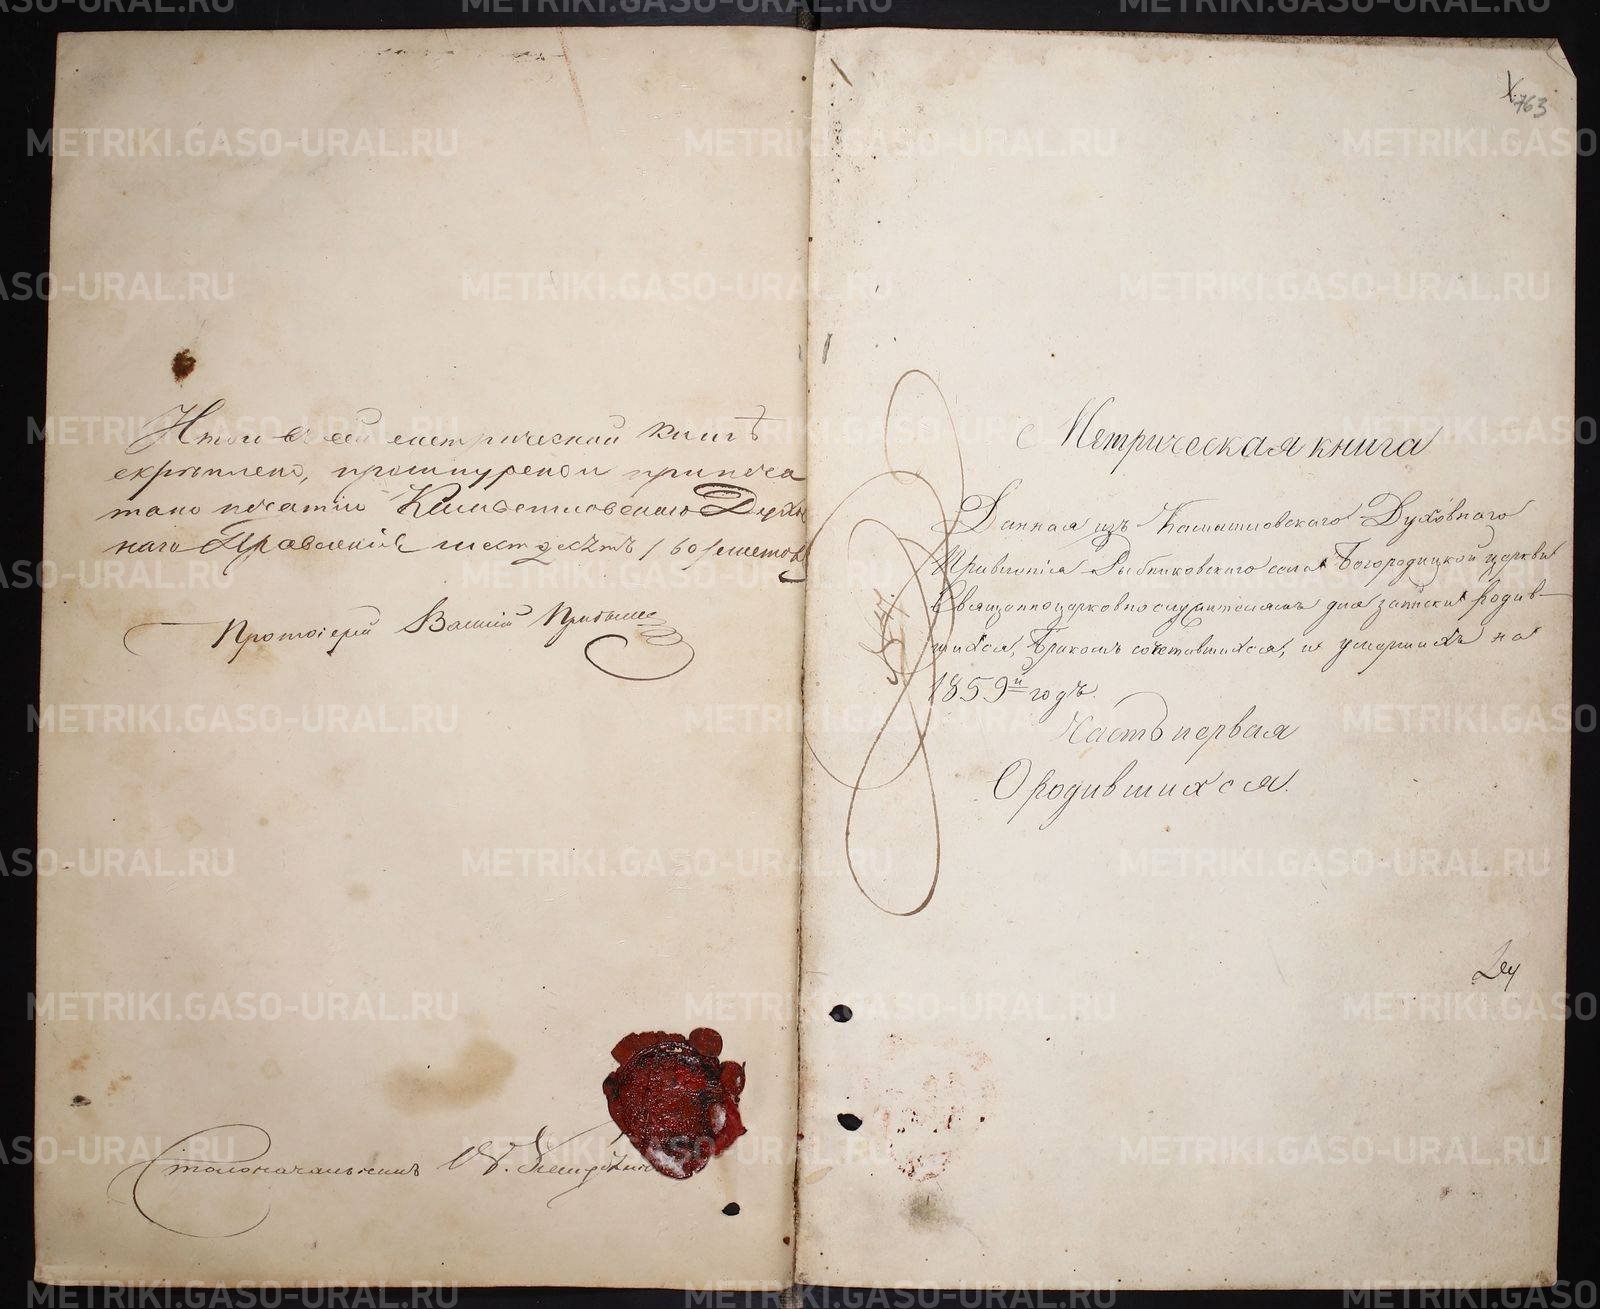 Итого въ сей метрической книгѣ
скрѣплено, прошнурено и припеча
тано печатію Камышловскаго Духов
наго Правленія шестдесятъ /60/ листов
Протоіерей Василій
Столоначальникъ
763
Метрическая книга
Данная изъ Камышловскаго Духовнаго
Правленія Рыбниковскаго села Богородицкой церкви
Священноцерковнослужителямъ для записки родив-
шихся, Бракомъ сочетавшихся, и умершихъ на
1859й годъ.
Часть первая
О родившихся.
METRIKI.GASO-URAL.RU